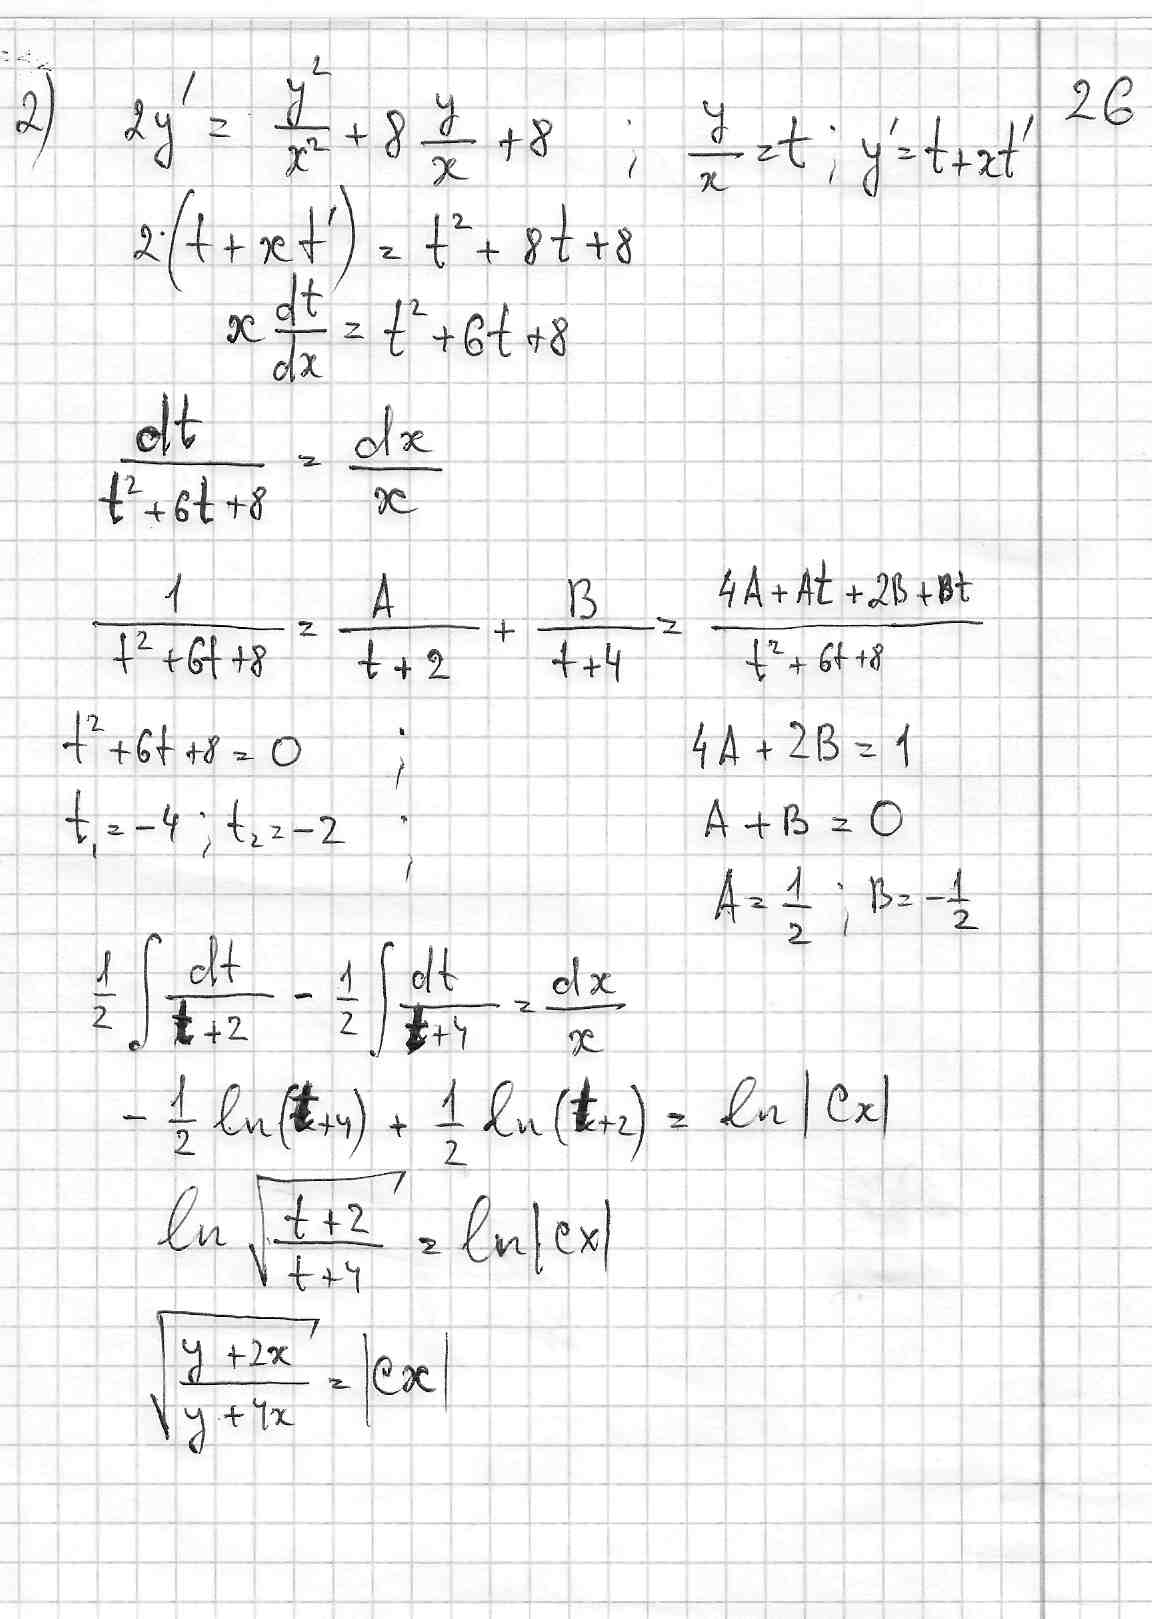 26
2) 2y' = y²/x² + 8 y/x + 8 ; y/x = t ; y' = t + xt'
2·(t + xt') = t² + 8t + 8
x dt/dx = t² + 6t + 8
dt/(t² + 6t + 8) = dx/x
1/(t² + 6t + 8) = A/(t + 2) + B/(t + 4) = (4A + At + 2B + Bt)/(t² + 6t + 8)
t² + 6t + 8 = 0 ; 4A + 2B = 1
t₁ = -4 ; t₂ = -2 ; A + B = 0
A = 1/2 ; B = -1/2
1/2 ∫ dt/(t + 2) - 1/2 ∫ dt/(t + 4) = dx/x
- 1/2 ln(t + 4) + 1/2 ln(t + 2) = ln|Cx|
ln √((t + 2)/(t + 4)) = ln|Cx|
√((y + 2x)/(y + 4x)) = |Cx|